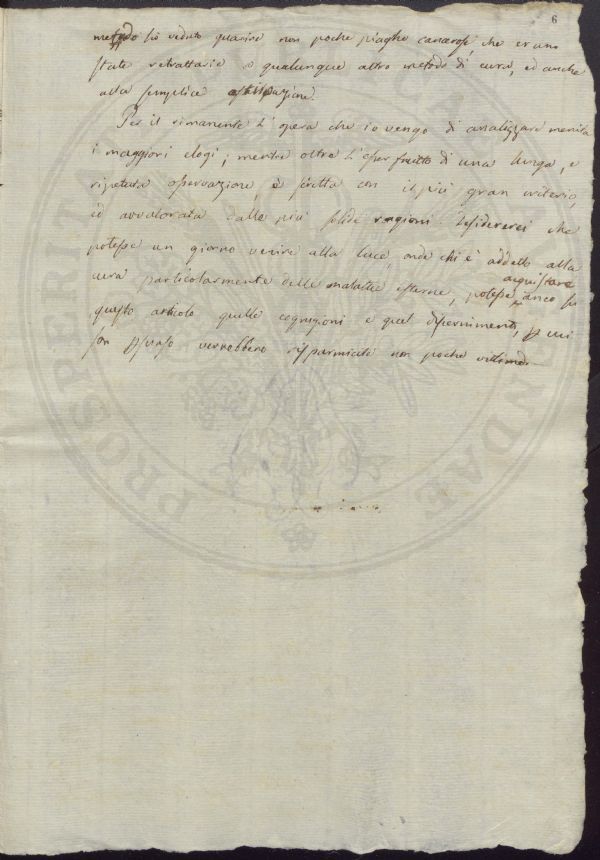 6
metodo ho veduto guarire non poche piaghe cancrose, che erano
state refrattarie a qualunque altro metodo di cura, ed anche
alla semplice estirpazione.
Per il rimanente l'opera che io vengo di analizzare merita
i maggiori elogi; mentre oltre l'esser frutto di una lunga, e
ripetuta osservazione, è scritta con il più gran criterio,
ed avvalorata dalle più solide ragioni. Desidererei che
potesse un giorno venire alla luce, onde chi è addetto alla
cura particolarmente delle malattie esterne, potesse acquistare anco su
questo articolo quelle cognizioni e quel discernimento, p cui
son sicuro verrebbero risparmiate non poche vittime.
PROSPERITATI